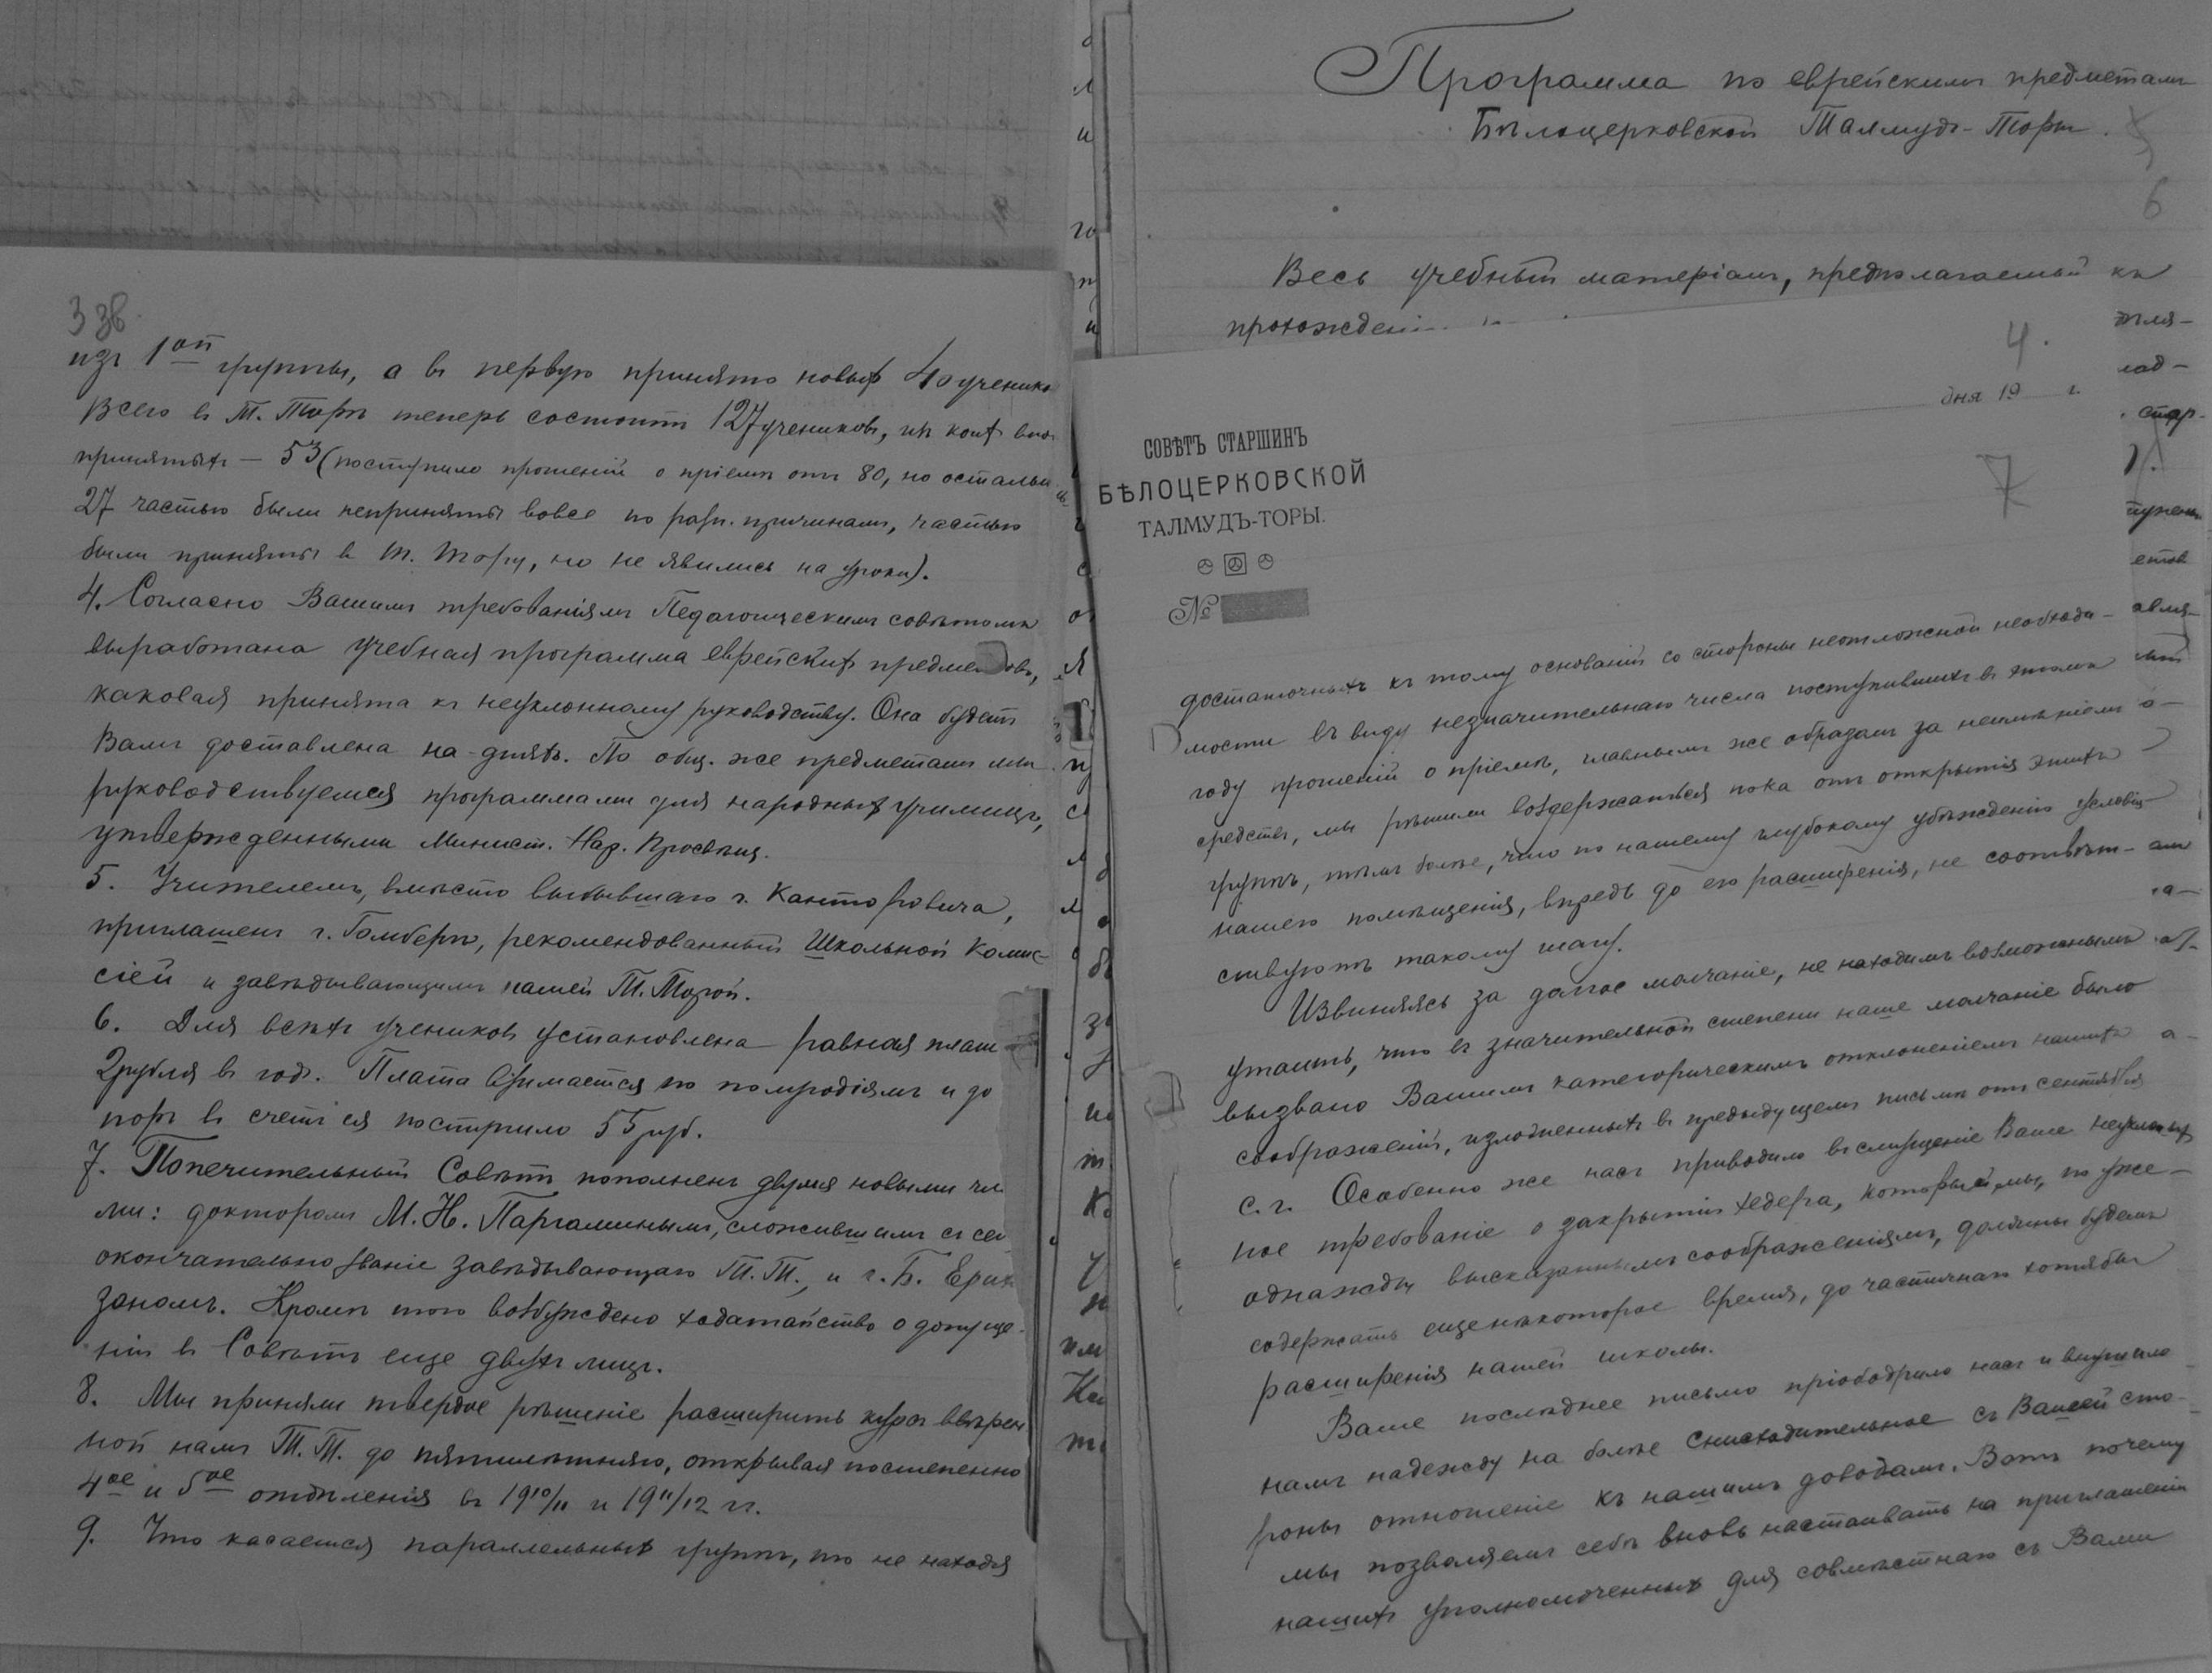 3 зв.
изъ 1ой группы, а въ первую принято новыхъ 40 ученик
Всего въ Т. Торѣ теперь состоитъ 127 учениковъ, из коих внов
принятыхъ — 53 (поступило прошеній о пріемѣ отъ 80, но остальн
27 частью были непринаты вовсе по разн. причинамъ, частью
были приняты въ Т. Тору, но не явились на уроки).
4. Согласно Вашимъ требованіямъ Педагогическимъ совѣтомъ
выработана учебная программа еврейскихъ предметовъ,
каковая принята къ неуклонному руководству. Она будетъ
Вамъ доставлена на-дняхъ. По общ. же предметамъ мы
руководствуемся программами для народныхъ училищъ,
утвержденными Минист. Нар. Просвѣщ.
5. Учителемъ, вмѣсто выбывшаго г. Канторовича,
приглашенъ г. Гомбергъ, рекомендованный Школьной Комис-
сіей и завѣдывающимъ нашей Т. Торой.
6. Для всѣхъ учениковъ установлена равная плат
2 рубля въ годъ. Плата взимается по полугодіямъ и до
поръ въ счетъ ея поступило 55 руб.
7. Попечительный Совѣтъ пополненъ двумя новыми чл
ми: докторомъ М. Н. Паргаминымъ, сложившимъ съ се
окончательно званіе завѣдывающаго Т. Т., и г. Б. Ерик
заномъ. Кромѣ того возбуждено ходатайство о допуще-
ніи въ Совѣтъ еще двухъ лицъ.
8. Мы приняли твердое рѣшеніе расширить курсъ ввѣрен
ной намъ Т. Т. до пятилѣтняго, открывая постепенно
4ое и 5ое отдѣленія въ 1910/11 и 1911/12 гг.
9. Что касается параллельныхъ группъ, то не находя
Программа по еврейскимъ предметамъ
Бѣлоцерковской Талмудъ-Торы.
6
Весь учебный матеріалъ, предполагаемый къ
прохожденію
4.
дня 19 г.
7
СОВѢТЪ СТАРШИНЪ
БѢЛОЦЕРКОВСКОЙ
ТАЛМУДЪ-ТОРЫ.
№
достаточныхъ къ тому основаній со стороны неотложной необходи-
мости въ виду незначительнаго числа поступившихъ въ этомъ
году прошеній о пріемѣ, главнымъ же образомъ за неимѣніемъ
средствъ, мы рѣшили воздержаться пока отъ открытія этихъ
группъ, тѣмъ болѣе, что по нашему глубокому убѣжденію условія
нашего помѣщенія, впредь до его расширенія, не соотвѣт-
ствуютъ такому шагу.
Извиняясь за долгое молчаніе, не находимъ возможнымъ
утаить, что въ значительной степени наше молчаніе было
вызвано Вашимъ категорическимъ отклоненіемъ нашихъ
соображеній, изложенныхъ въ предыдущемъ письмѣ отъ сентября
с. г. Особенно же насъ приводило въ смущеніе Ваше неуклон
ное требованіе о закрытіи хедера, который мы, по уже
однажды высказаннымъ соображеніямъ, должны будемъ
содержать еще нѣкоторое время, до частичнаго хотя бы
расширенія нашей школы.
Ваше послѣднее письмо пріободрило насъ и внушило
намъ надежду на болѣе снисходительное съ Вашей сто-
роны отношеніе къ нашимъ доводамъ. Вотъ почему
мы позволяемъ себѣ вновь настаивать на приглашеніи
нашихъ уполномоченныхъ для совмѣстнаго съ Вами